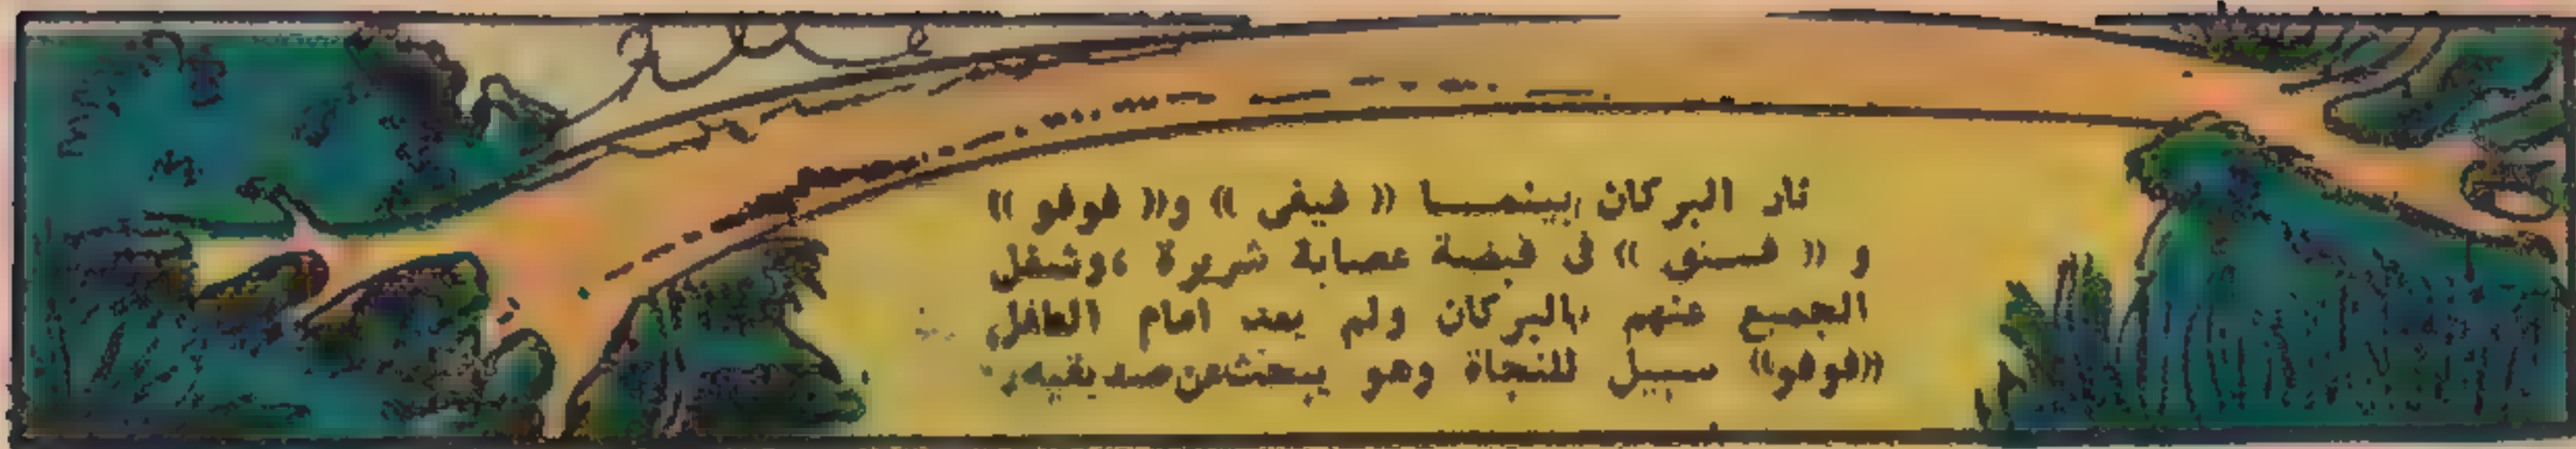 ثار البركان بينمـــا « فيفى » و« فوفو »
و « فسنق » فى قبضة عصابة شريرة ، وشغل
الجميع عنهم بالبركان ولم يعد امام الطفل
«فوفو» سبيل للنجاة وهو يبحث عن صديقيه